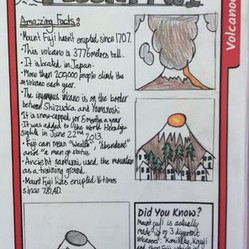 Mount Fuji
Amazing Facts:
• Mount Fuji hasn't erupted since 1707.
• This volcano is 3776metres tall.
• It is located in Japan.
• More than 200,000 people climb the
volcano each year.
• The volcano is on the border
between Shizuoka and Yamanashi.
• It is snow-capped for 5 months a year
• It was added to the World Heritage
sights in June 22nd 2013.
• Fuji can mean "wealth" "abundant"
and "a man of status".
• Ancient samurai used the mountain
as a training ground.
• Mount Fuji has erupted 16 times
since 781 AD.
Volcanoes
Did You Know?
Mount Fuji is actually
made up of 3 different
volcanoes: